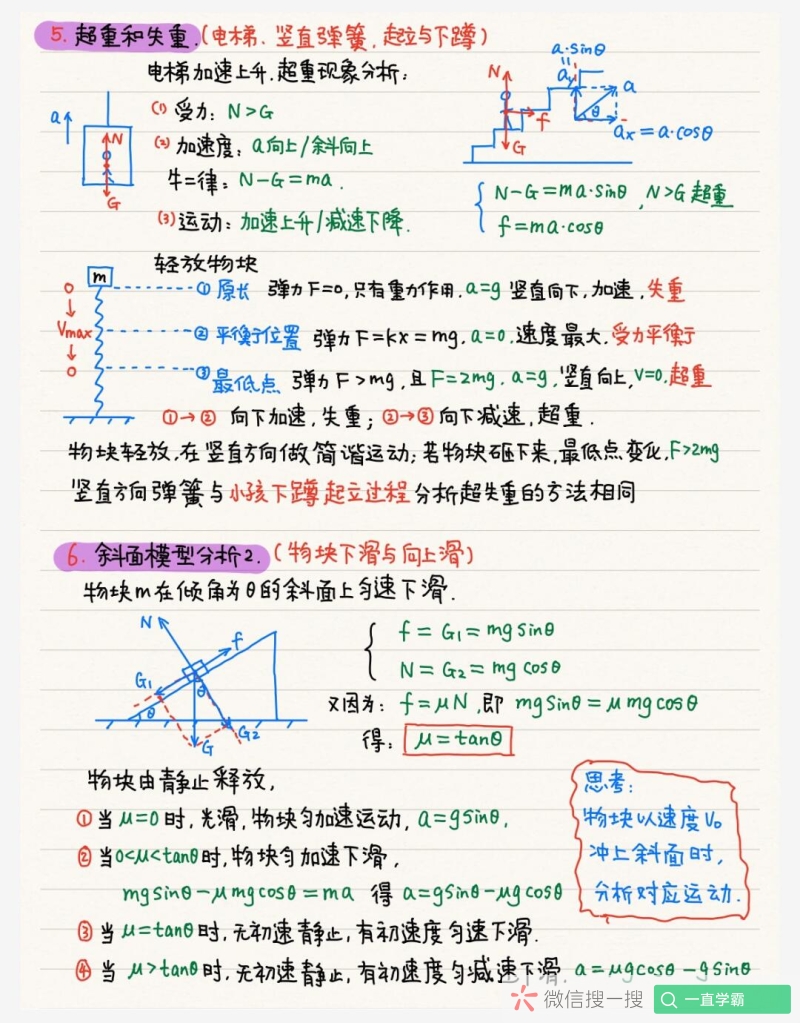 5. 超重和失重.(电梯、竖直弹簧,起立与下蹲)
电梯加速上升.超重现象分析:
(1) 受力: N>G
(2) 加速度: a向上/斜向上
牛二律: N-G=ma.
(3) 运动: 加速上升/减速下降.
a
N
G
a·sinθ
ay
a
θ
ax=a·cosθ
N
f
G
N-G=ma·sinθ ,N>G 超重
f=ma·cosθ
轻放物块
m
0
Vmax
0
① 原长 弹力F=0,只有重力作用.a=g 竖直向下,加速,失重
② 平衡位置 弹力F=kx=mg.a=0.速度最大.受力平衡
③ 最低点 弹力F>mg,且F=2mg.a=g,竖直向上,V=0.超重
①→② 向下加速,失重; ②→③向下减速,超重.
物块轻放.在竖直方向做简谐运动;若物块砸下来,最低点变化,F>2mg
竖直方向弹簧与小孩下蹲起立过程分析超失重的方法相同
6. 斜面模型分析2.(物块下滑与向上滑)
物块m在倾角为θ的斜面上匀速下滑.
N
f
G1
θ
θ
G
G2
f=G1=mgsinθ
N=G2=mgcosθ
又因为: f=μN ,即 mgsinθ=μmgcosθ
得: μ=tanθ
物块由静止释放,
①当μ=0时,光滑,物块匀加速运动,a=gsinθ,
②当0<μ<tanθ时,物块匀加速下滑,
mgsinθ-μmgcosθ=ma 得 a=gsinθ-μgcosθ
③当μ=tanθ时,无初速静止,有初速度匀速下滑.
④当μ>tanθ时,无初速静止,有初速度匀减速下滑 a=μgcosθ-gsinθ
思考:
物块以速度V0
冲上斜面时,
分析对应运动.
微信搜一搜
一直学霸